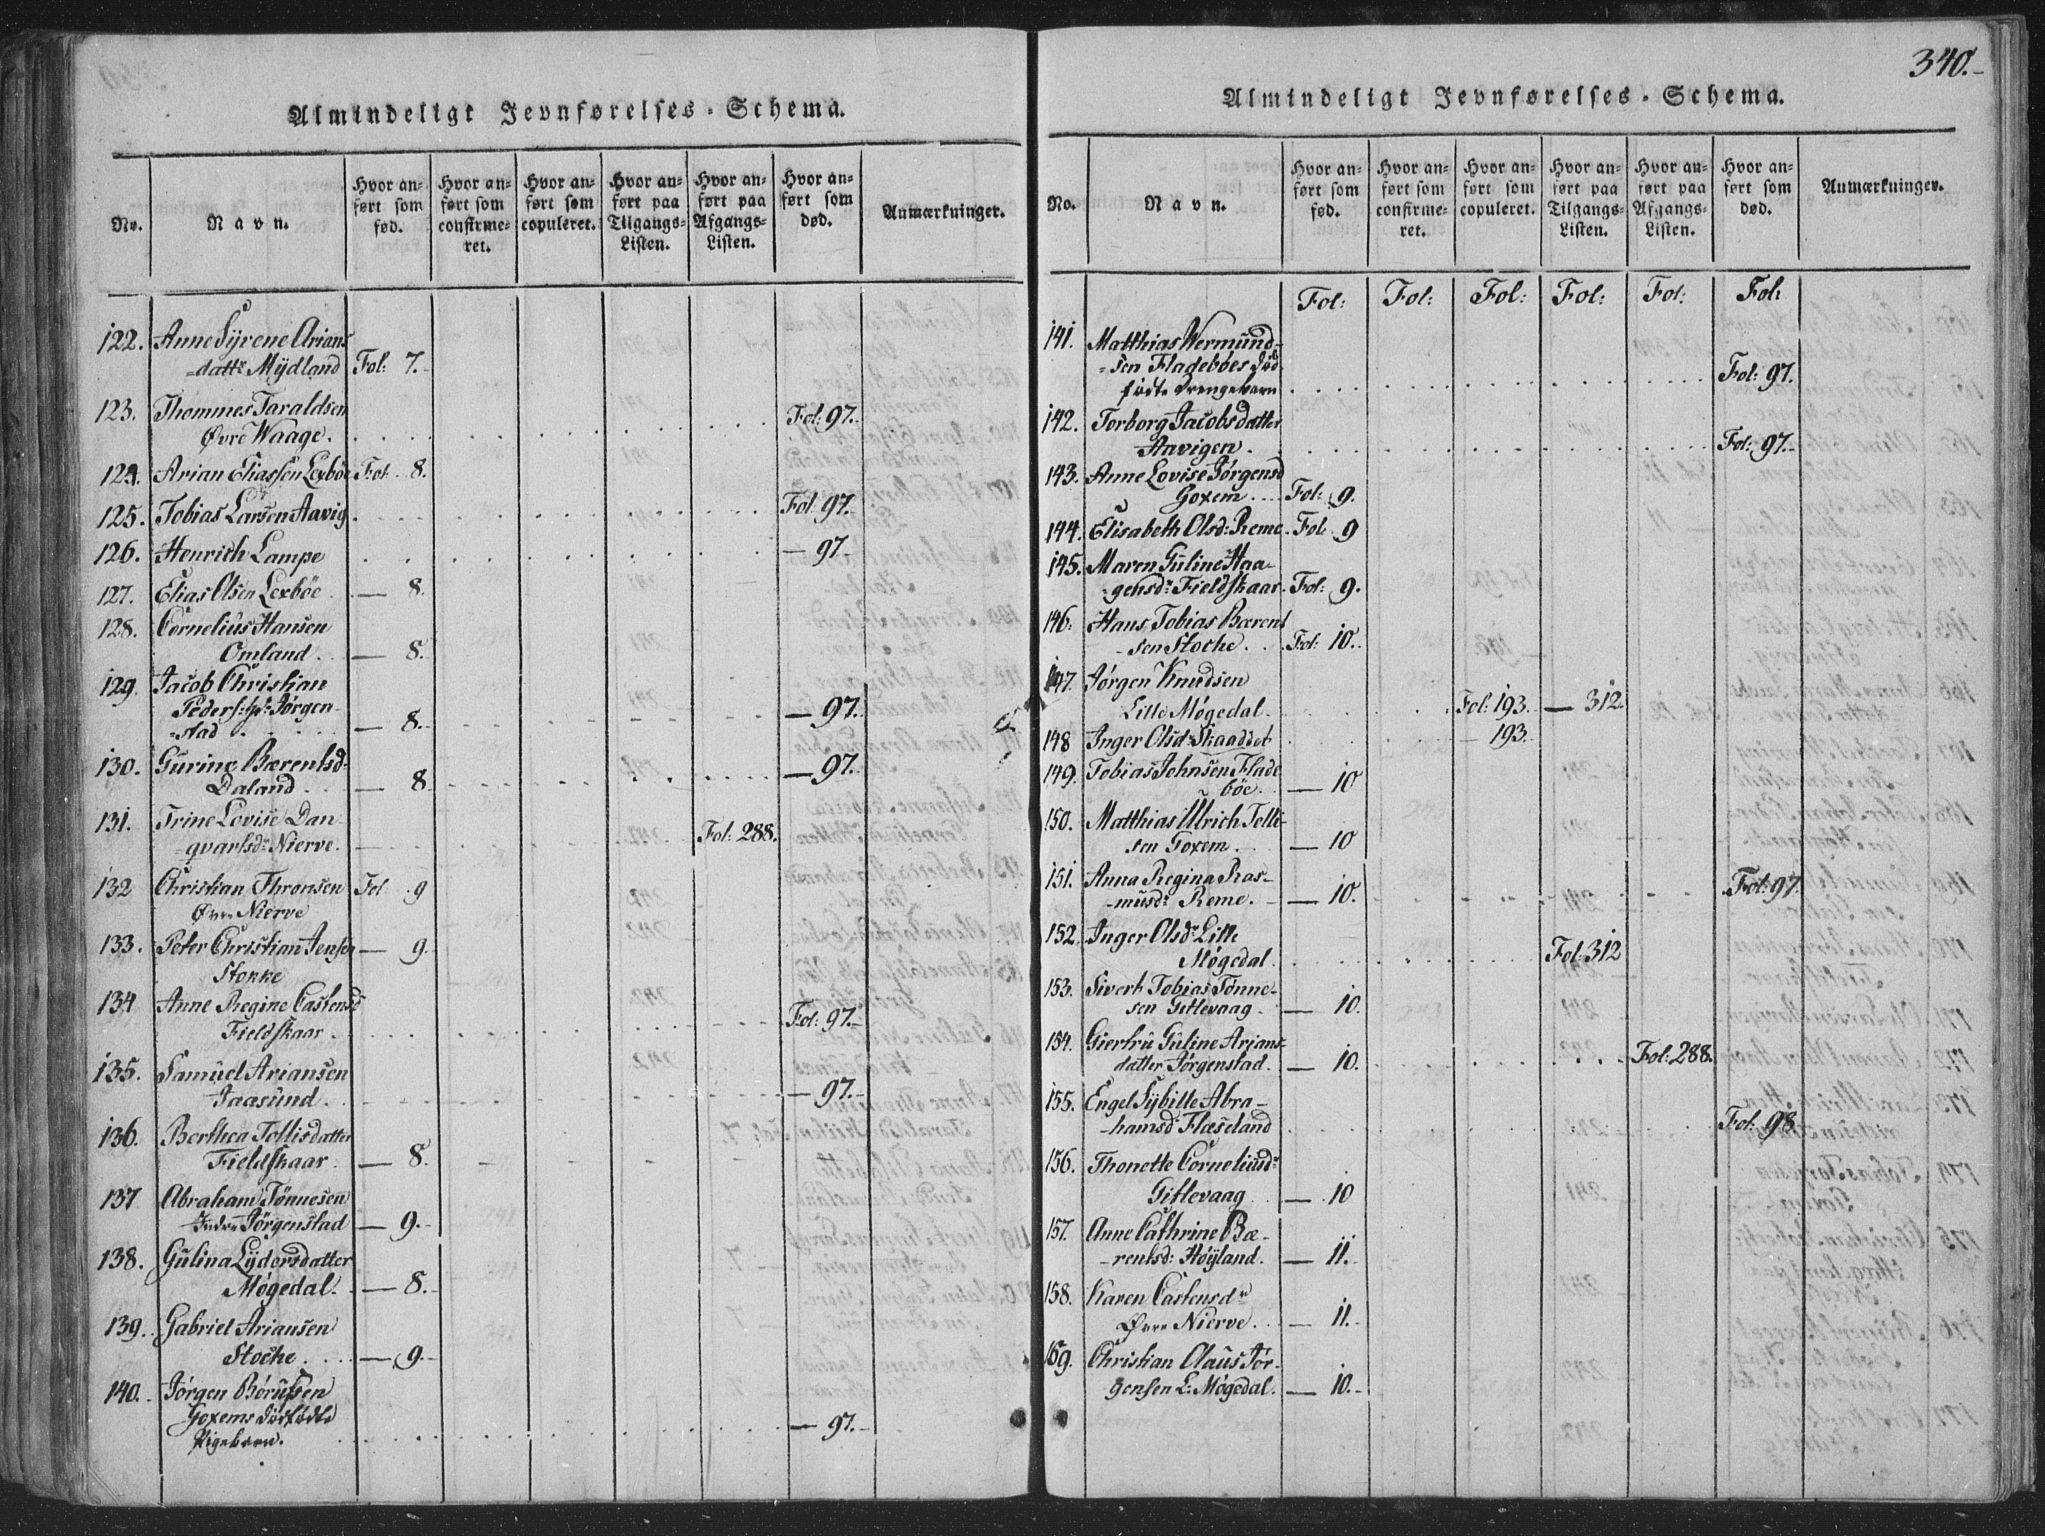 Almindeligt Jevnførelses-Schema.
No.
Navn.
Hvor an-
ført som
fød.
Hvor an-
ført som
confirme-
ret.
Hvor an-
ført som
copuleret.
Hvor an-
ført paa
Tilgangs-
Listen.
Hvor an-
ført paa
Afgangs-
Listen.
Hvor an-
ført som
død.
Anmærkninger.
122. Anne Syrene Arians
-dattr Mydland Fol: 7.-
123. Thommes Taraldsen
Øvre Waage. Fol: 97.-
124. Arian Eliassen Lexböe Fol 8.
125. Tobias Larsen Aavig Fol 97.-
126. Henrich Lampe — 97.-
127. Elias Olsen Lexböe — 8.
128. Cornelius Hansen
Omland. — 8.
129. Jacob Christian
Peders: Jørgen-
-stad — 8. — 97.-
130. Gurine Bærentsd:
Daland. — 8 — 97.-
131. Trine Lovise Dan
-qvartsdr Nierve. Fol: 288.
132 Christian Thronsen Fol 9
Øvre Nierve
133. Peter Christian Jensen — 9.
Stokke
134 Anne Regine Castensd
Fieldskaar. Fol: 97.-
135. Samuel Ariansen
Jaasund. — 97.-
136. Berthea Tollisdatter
Fieldskaar. — 8.
137 Abraham Tønnesen
Indre Jørgenstad — 9.-
138. Gulina Lydersdatter
Møgedal. — 8.-
139. Gabriel Ariansen
Stoche. — 9.-
140. Jørgen Børufsen
Goxems dödfödte
Pigebarn. — 97.-
340.-
Almindeligt Jevnførelses-Schema.
No.
Navn.
Hvor an-
ført som
fød.
Hvor an-
ført som
confirme-
ret.
Hvor an-
ført som
copuleret.
Hvor an-
ført paa
Tilgangs-
Listen.
Hvor an-
ført paa
Afgangs-
Listen.
Hvor an-
ført som
død.
Anmærkninger.
Fol: Fol: Fol: Fol: Fol: Fol:
141. Matthias Wermund-
-sen Fladeböes död
födte Drengebarn Fol: 97.
142. Torborg Jacobsdatter
Aavigen. Fol: 97.-
143. Anne Lovise Jørgensd
Goxem. Fol: 9.
144. Elisabeth Olsd: Reme Fol: 9
145. Maren Guline Haa-
-gensdr Fieldskaar. Fol: 9.
146. Hans Tobias Bærent
-sen Stoche. Fol: 10.
147. Jørgen Knudsen
Litle Møgedal. Fol: 193. — 312.
148 Inger Olsdr Skaaddet — 193.
149. Tobias Johnsen Flade
böe. — 10
150. Matthias Ulrich Telle-
sen Goxem. — 10
151. Anna Regina Ras-
-musdr Reme. — 10. Fol: 97.
152. Inger Olsdr Litle
Møgedal. Fol: 312
153. Sivert Tobias Tønne-
sen Gitlevaag. — 10.
154. Giertru Guline Arians-
datter Jørgenstad. — 10. Fol: 288.
155. Engel Sybille Abra-
-hamsd Flæseland Fol: 98.
156. Thonette Corneliusdr
Gitlevaag — 10
157. Anne Cathrine Bæ-
-rentsd: Høyland. — 11.-
158. Karen Castensdr
Øvre Nierve. — 11.-
159. Christian Claus Jør-
gensen L: Møgedal. — 10.-